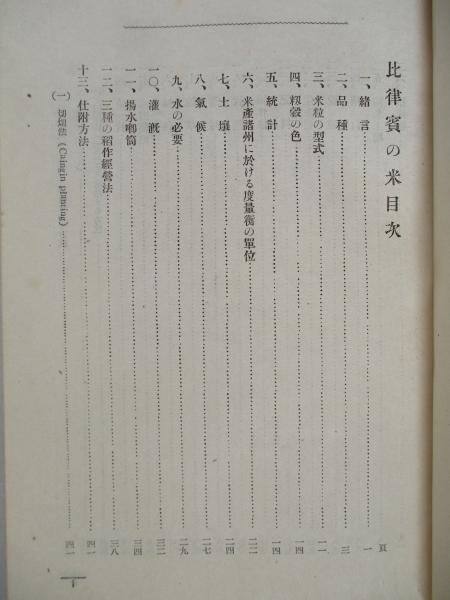 比律賓の米目次
頁
一、緒言 一
二、品種 三
三、米粒の型式 一一
四、籾殼の色 一四
五、統計 一四
六、米產諸州に於ける度量衡の單位 二二
七、土壤 二四
八、氣候 二七
九、水の必要 二九
一〇、灌漑 三二
一一、揚水喞筒 三四
一二、三種の稻作經營法 三八
十三、仕附方法 四一
(一) 切畑法 (Caingin planting) 四一
一